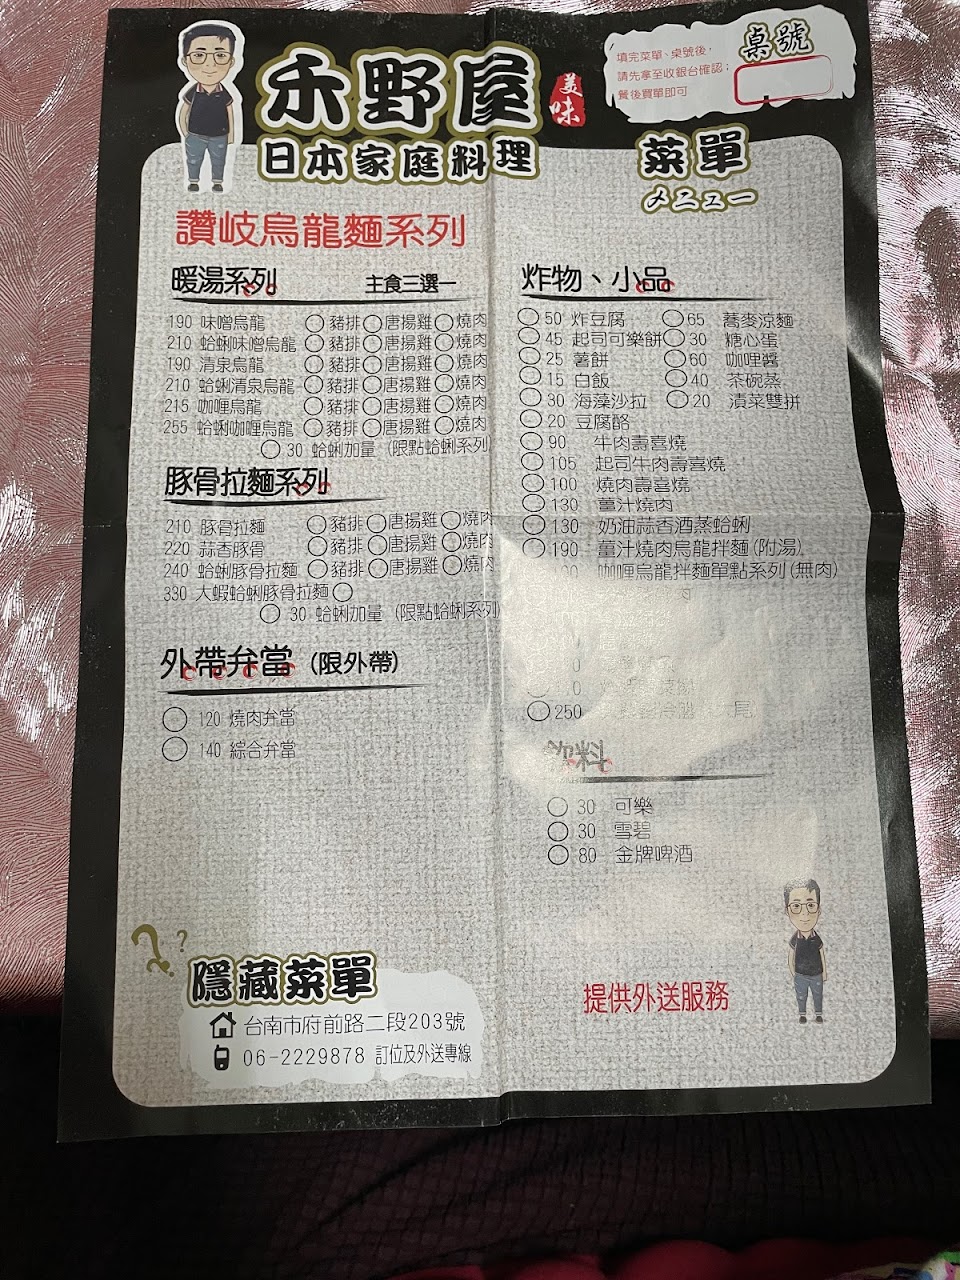 禾野屋
美味
日本家庭料理
填完菜單、桌號後，
請先拿至收銀台確認；
餐後買單即可
桌號
菜單
メニュー
讚岐烏龍麵系列
暖湯系列 主食三選一
190 味噌烏龍 豬排 唐揚雞 燒肉
210 蛤蜊味噌烏龍 豬排 唐揚雞 燒肉
190 清泉烏龍 豬排 唐揚雞 燒肉
210 蛤蜊清泉烏龍 豬排 唐揚雞 燒肉
215 咖哩烏龍 豬排 唐揚雞 燒肉
255 蛤蜊咖哩烏龍 豬排 唐揚雞 燒肉
30 蛤蜊加量 (限點蛤蜊系列)
豚骨拉麵系列
210 豚骨拉麵 豬排 唐揚雞 燒肉
220 蒜香豚骨 豬排 唐揚雞 燒肉
240 蛤蜊豚骨拉麵 豬排 唐揚雞 燒肉
330 大蝦蛤蜊豚骨拉麵
30 蛤蜊加量 (限點蛤蜊系列)
外帶弁當 (限外帶)
120 燒肉弁當
140 綜合弁當
炸物、小品
50 炸豆腐 65 蕎麥涼麵
45 起司可樂餅 30 糖心蛋
25 薯餅 60 咖哩醬
15 白飯 40 茶碗蒸
30 海藻沙拉 20 漬菜雙拼
20 豆腐酪
90 牛肉壽喜燒
105 起司牛肉壽喜燒
100 燒肉壽喜燒
130 薑汁燒肉
130 奶油蒜香酒蒸蛤蜊
190 薑汁燒肉烏龍拌麵(附湯)
咖哩烏龍拌麵單點系列(無肉)
250 尾
飲料
30 可樂
30 雪碧
80 金牌啤酒
提供外送服務
? ?
隱藏菜單
台南市府前路二段203號
06-2229878 訂位及外送專線